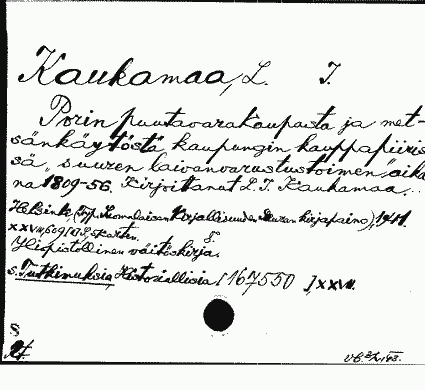 Kaukamaa, L. I.
Porin puutavarakaupasta ja met-
sänkäytöstä kaupungin kauppapiiris-
sä „suuren laivanvarustustoimen" aika-
na 1809-56. Kirjoittanut L.I. Kaukamaa.
Helsinki, (Trp. Suomalaisen Kirjallisuuden Seuran kirjapaino), 1941.
XXVII, 609 [1] s. kartt. 8°.
Yliopistollinen väitöskirja.
s. Tutkimuksia, Historiallisia [167550], XXVII.
S